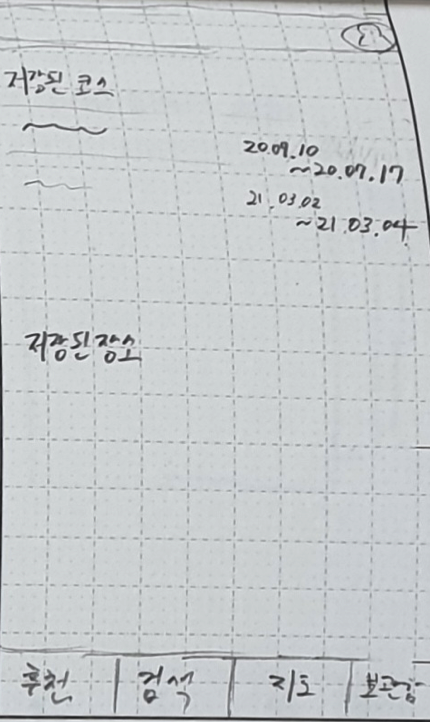 저장된 코스
20.09.10
~20.09.17
21.03.02
~21.03.04
저장된 장소
추천 검색 지도 보관함